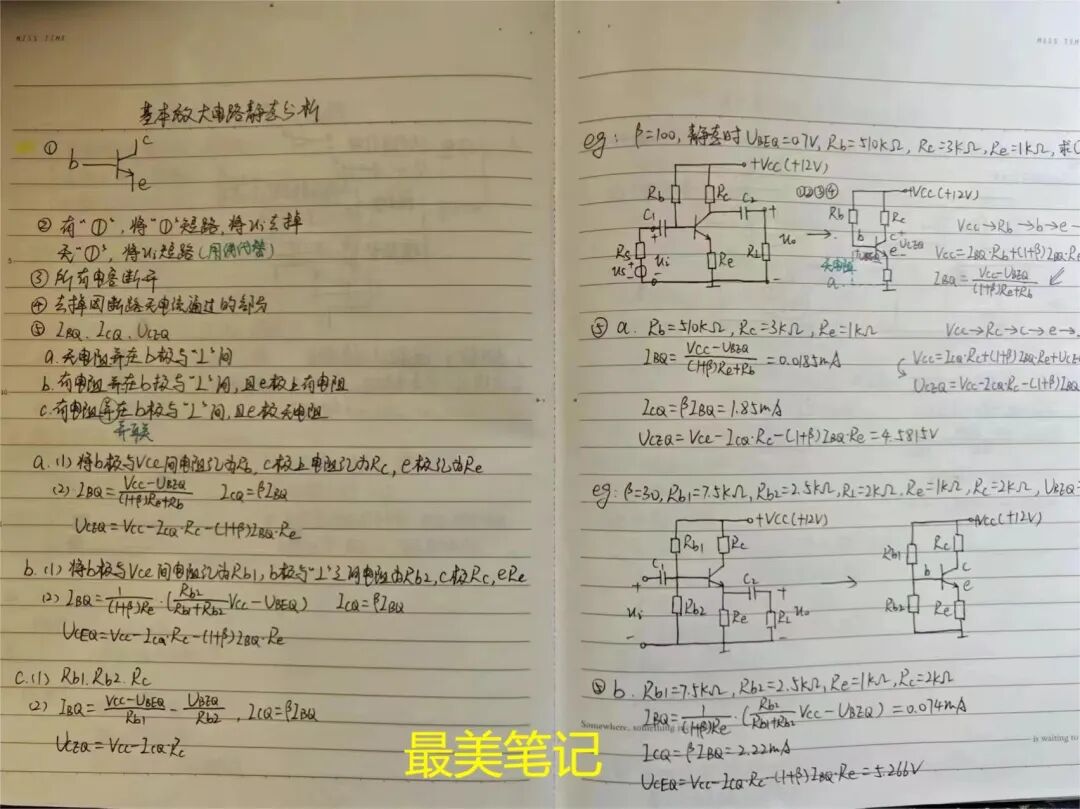 MISS TIME
基本放大电路静态分析
①
b
c
e
② 有“①”，将“①”短路，将Ui去掉
无“①”，将Ui短路（用闭代替）
③ 所有电容断开
④ 去掉因断路无电流通过的部分
⑤ IBQ、ICQ、UCEQ
a. 无电阻并在b极与“⊥”间
b. 有电阻并在b极与“⊥”间，且e极上有电阻
c. 有电阻并在b极与“⊥”间，且e极无电阻
a. (1) 将b极与Vcc间电阻记为Rb，c极上电阻记为Rc，e极记为Re
(2) IBQ=(Vcc-UBEQ)/((1+β)Re+Rb) ICQ=βIBQ
UCEQ=Vcc-ICQ·Rc-(1+β)IBQ·Re
b. (1) 将b极与Vcc间电阻记为Rb1，b极与“⊥”之间电阻为Rb2，c极Rc，e Re
(2) IBQ=1/((1+β)Re)·(Rb2/(Rb1+Rb2)Vcc-UBEQ) ICQ=βIBQ
UCEQ=Vcc-ICQ·Rc-(1+β)IBQ·Re
c. (1) Rb1. Rb2. Rc
(2) IBQ=(Vcc-UBEQ)/Rb1-UBEQ/Rb2，ICQ=βIBQ
UCEQ=Vcc-ICQ·Rc
MISS TIM
eg: β=100，静态时UBEQ=0.7V，Rb=510KΩ，Rc=3KΩ，Re=1KΩ，求
+Vcc(+12V)
Rb
Rc
C2
+
C1
Rs
us
ui
Re
RL
uo
-
①②③④
+Vcc(+12V)
Rb
Rc
b
c+
UCEQ
e-
无电阻
a.
Vcc→Rb→b→e→
Vcc=IBQ·Rb+(1+β)IBQ·Re
IBQ=(Vcc-UBEQ)/((1+β)Re+Rb)
⑤ a. Rb=510KΩ，Rc=3KΩ，Re=1KΩ
IBQ=(Vcc-UBEQ)/((1+β)Re+Rb)=0.0185mA
ICQ=βIBQ=1.85mA
UCEQ=Vcc-ICQ·Rc-(1+β)IBQ·Re=4.5815V
Vcc→Rc→c→e→
Vcc=ICQ·Rc+(1+β)IBQ·Re+UCEQ
UCEQ=Vcc-ICQ·Rc-(1+β)IBQ
eg: β=30, Rb1=7.5KΩ, Rb2=2.5KΩ, RL=2KΩ, Re=1KΩ, Rc=2KΩ, UBEQ=
+Vcc(+12V)
Rb1
Rc
C1
+
C2
+
ui
Rb2
Re
RL
uo
-
-
+Vcc(+12V)
Rb1
Rc
b
c
e
Rb2
Re
⑤ b. Rb1=7.5KΩ, Rb2=2.5KΩ, Re=1KΩ, Rc=2KΩ
IBQ=1/((1+β)Re)·(Rb2/(Rb1+Rb2)Vcc-UBEQ)=0.074mA
Somewhere, something i
is waiting to
ICQ=βIBQ=2.22mA
UCEQ=Vcc-ICQ·Rc-(1+β)IBQ·Re=5.266V
最美笔记